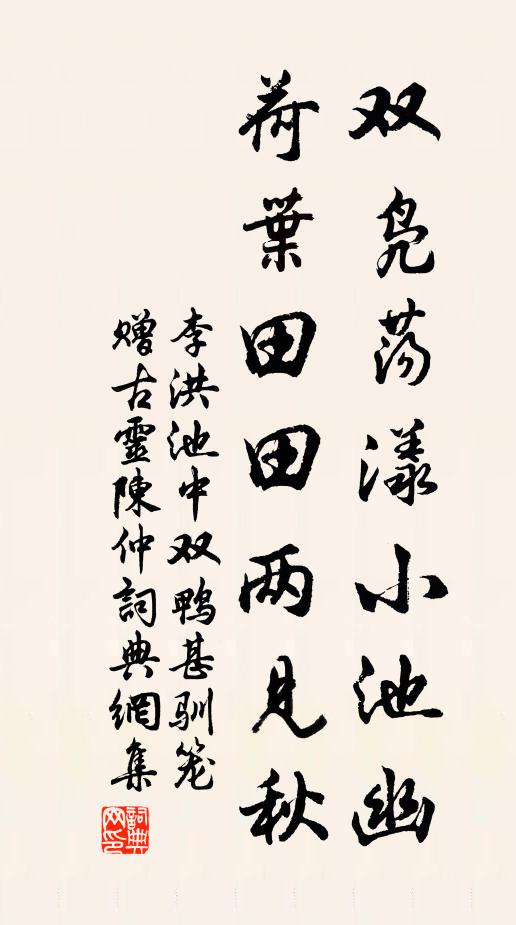 双凫荡漾小池幽
荷葉田田两见秋
李洪池中双鸭甚馴笼
赠古靈陳仲詞典網集
詞典
网印